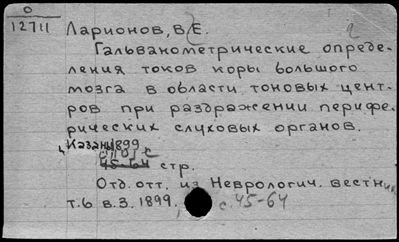 0
12711
Ларионов, В. Е.
Гальванометрические опреде-
ления токов коры большого
мозга в области тоновых цент-
ров при раздражении перифе-
рических слуховых органов.
Казань 1899
45-64 стр.
Отд. отт. из Неврологич. вестник,
т.6 в.3. 1899. с. 45-64